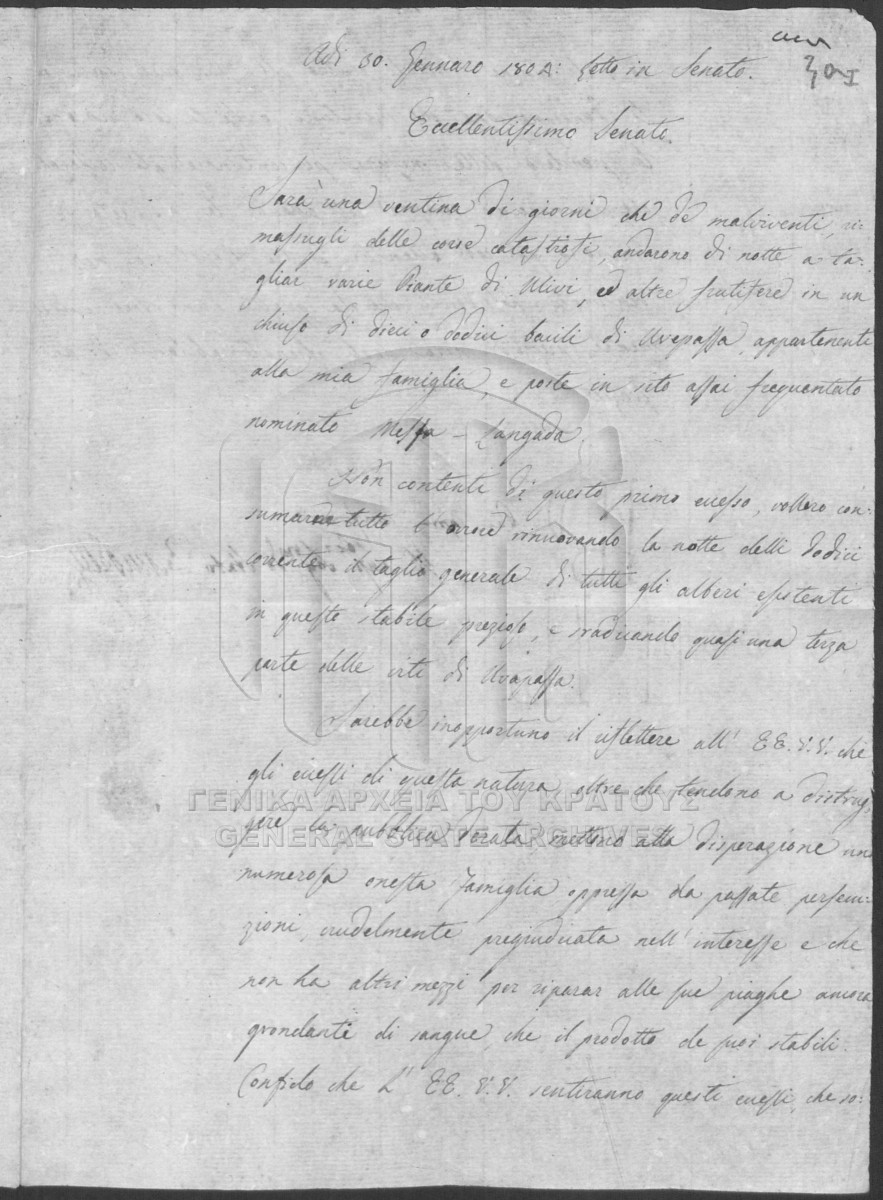 Adi 30. Gennaro 1804: Letto in Senato.
301
Eccellentissimo Senato.
Sarà una ventina di giorni che de malviventi, ri-
massugli delle corse catastrofi, andarono di notte a ta-
gliar varie Piante di Ulivi, ed altre frutifere in un
chiuso di dieci o dodici bacili di Uvapassa, appartenente
alla mia famiglia, e poste in sito assai frequentato
nominato Messa-Langada.
Non contenti di questo primo eccesso, vollero con-
sumare tutto l'orrore rinnovando la notte delli dodici
corrente il taglio generale di tutti gli alberi esistenti
in questo stabile prezioso, e sradicando quasi una terza
parte delle viti di Uvapassa.
Sarebbe inopportuno il riflettere all' EE.V.V. che
gli eccessi di questa natura, oltre che tendono a distrug-
gere la pubblica Dorata, mettono alla disperazione una
numerosa onesta Famiglia oppressa da passate persecu-
zioni, crudelmente pregiudicata nell' interesse e che
non ha altri mezzi per riparar alle sue piaghe ancora
grondanti di sangue, che il prodotto de suoi stabili.
Confido che L' EE.V.V. sentiranno questi eccessi, che so-
ΓΕΝΙΚΑ ΑΡΧΕΙΑ ΤΟΥ ΚΡΑΤΟΥΣ
GENERAL STATE ARCHIVES